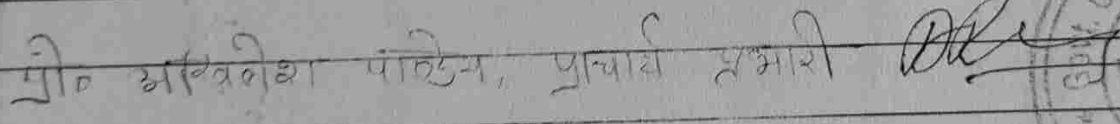 प्रो० अखिलेश पाण्डेय, प्राचार्य प्रभारी